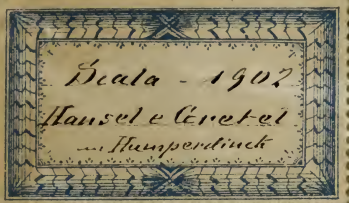 Scala - 1902
Hansel e Gretel
Humperdinck